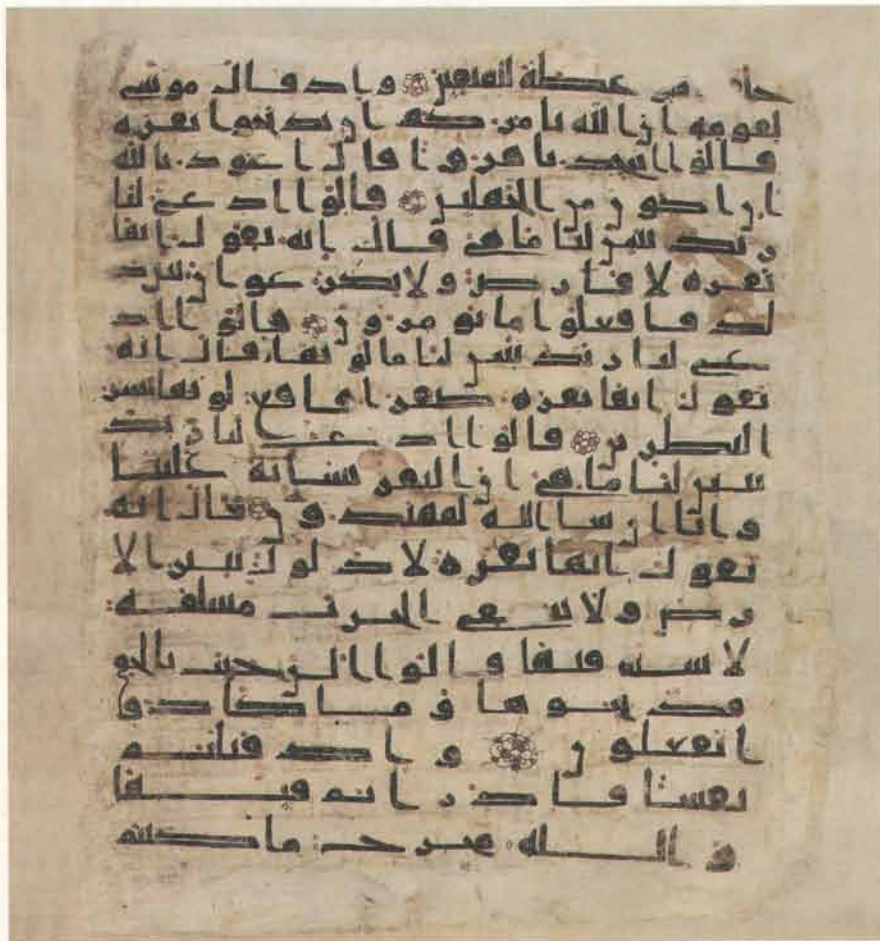 وموعظة للمتقين واذ قال موسى
لقومه ان الله يامركم ان تذبحوا بقرة
قالوا اتتخذنا هزوا قال اعوذ بالله
ان اكون من الجهلين قالوا ادع لنا
ربك يبين لنا ما هي قال انه يقول انها
بقرة لا فارض ولا بكر عوان بين ذ
لك فافعلوا ما تومرون قالوا اد
ع لنا ربك يبين لنا ما لونها قال انه
يقول انها بقرة صفرا فاقع لونها تسر
النظرين قالوا ادع لنا ربك
يبين لنا ما هي ان البقر تشبه علينا
وانا ان شا الله لمهتدون قال انه
يقول انها بقرة لا ذلول تثير الا
رض ولا تسقي الحرث مسلمة
لا شية فيها قالوا الن جيت بالحق
فذبحوها وما كادوا
يفعلون واذ قتلتم
نفسا فادرتم فيها
والله مخرج ما كنتم